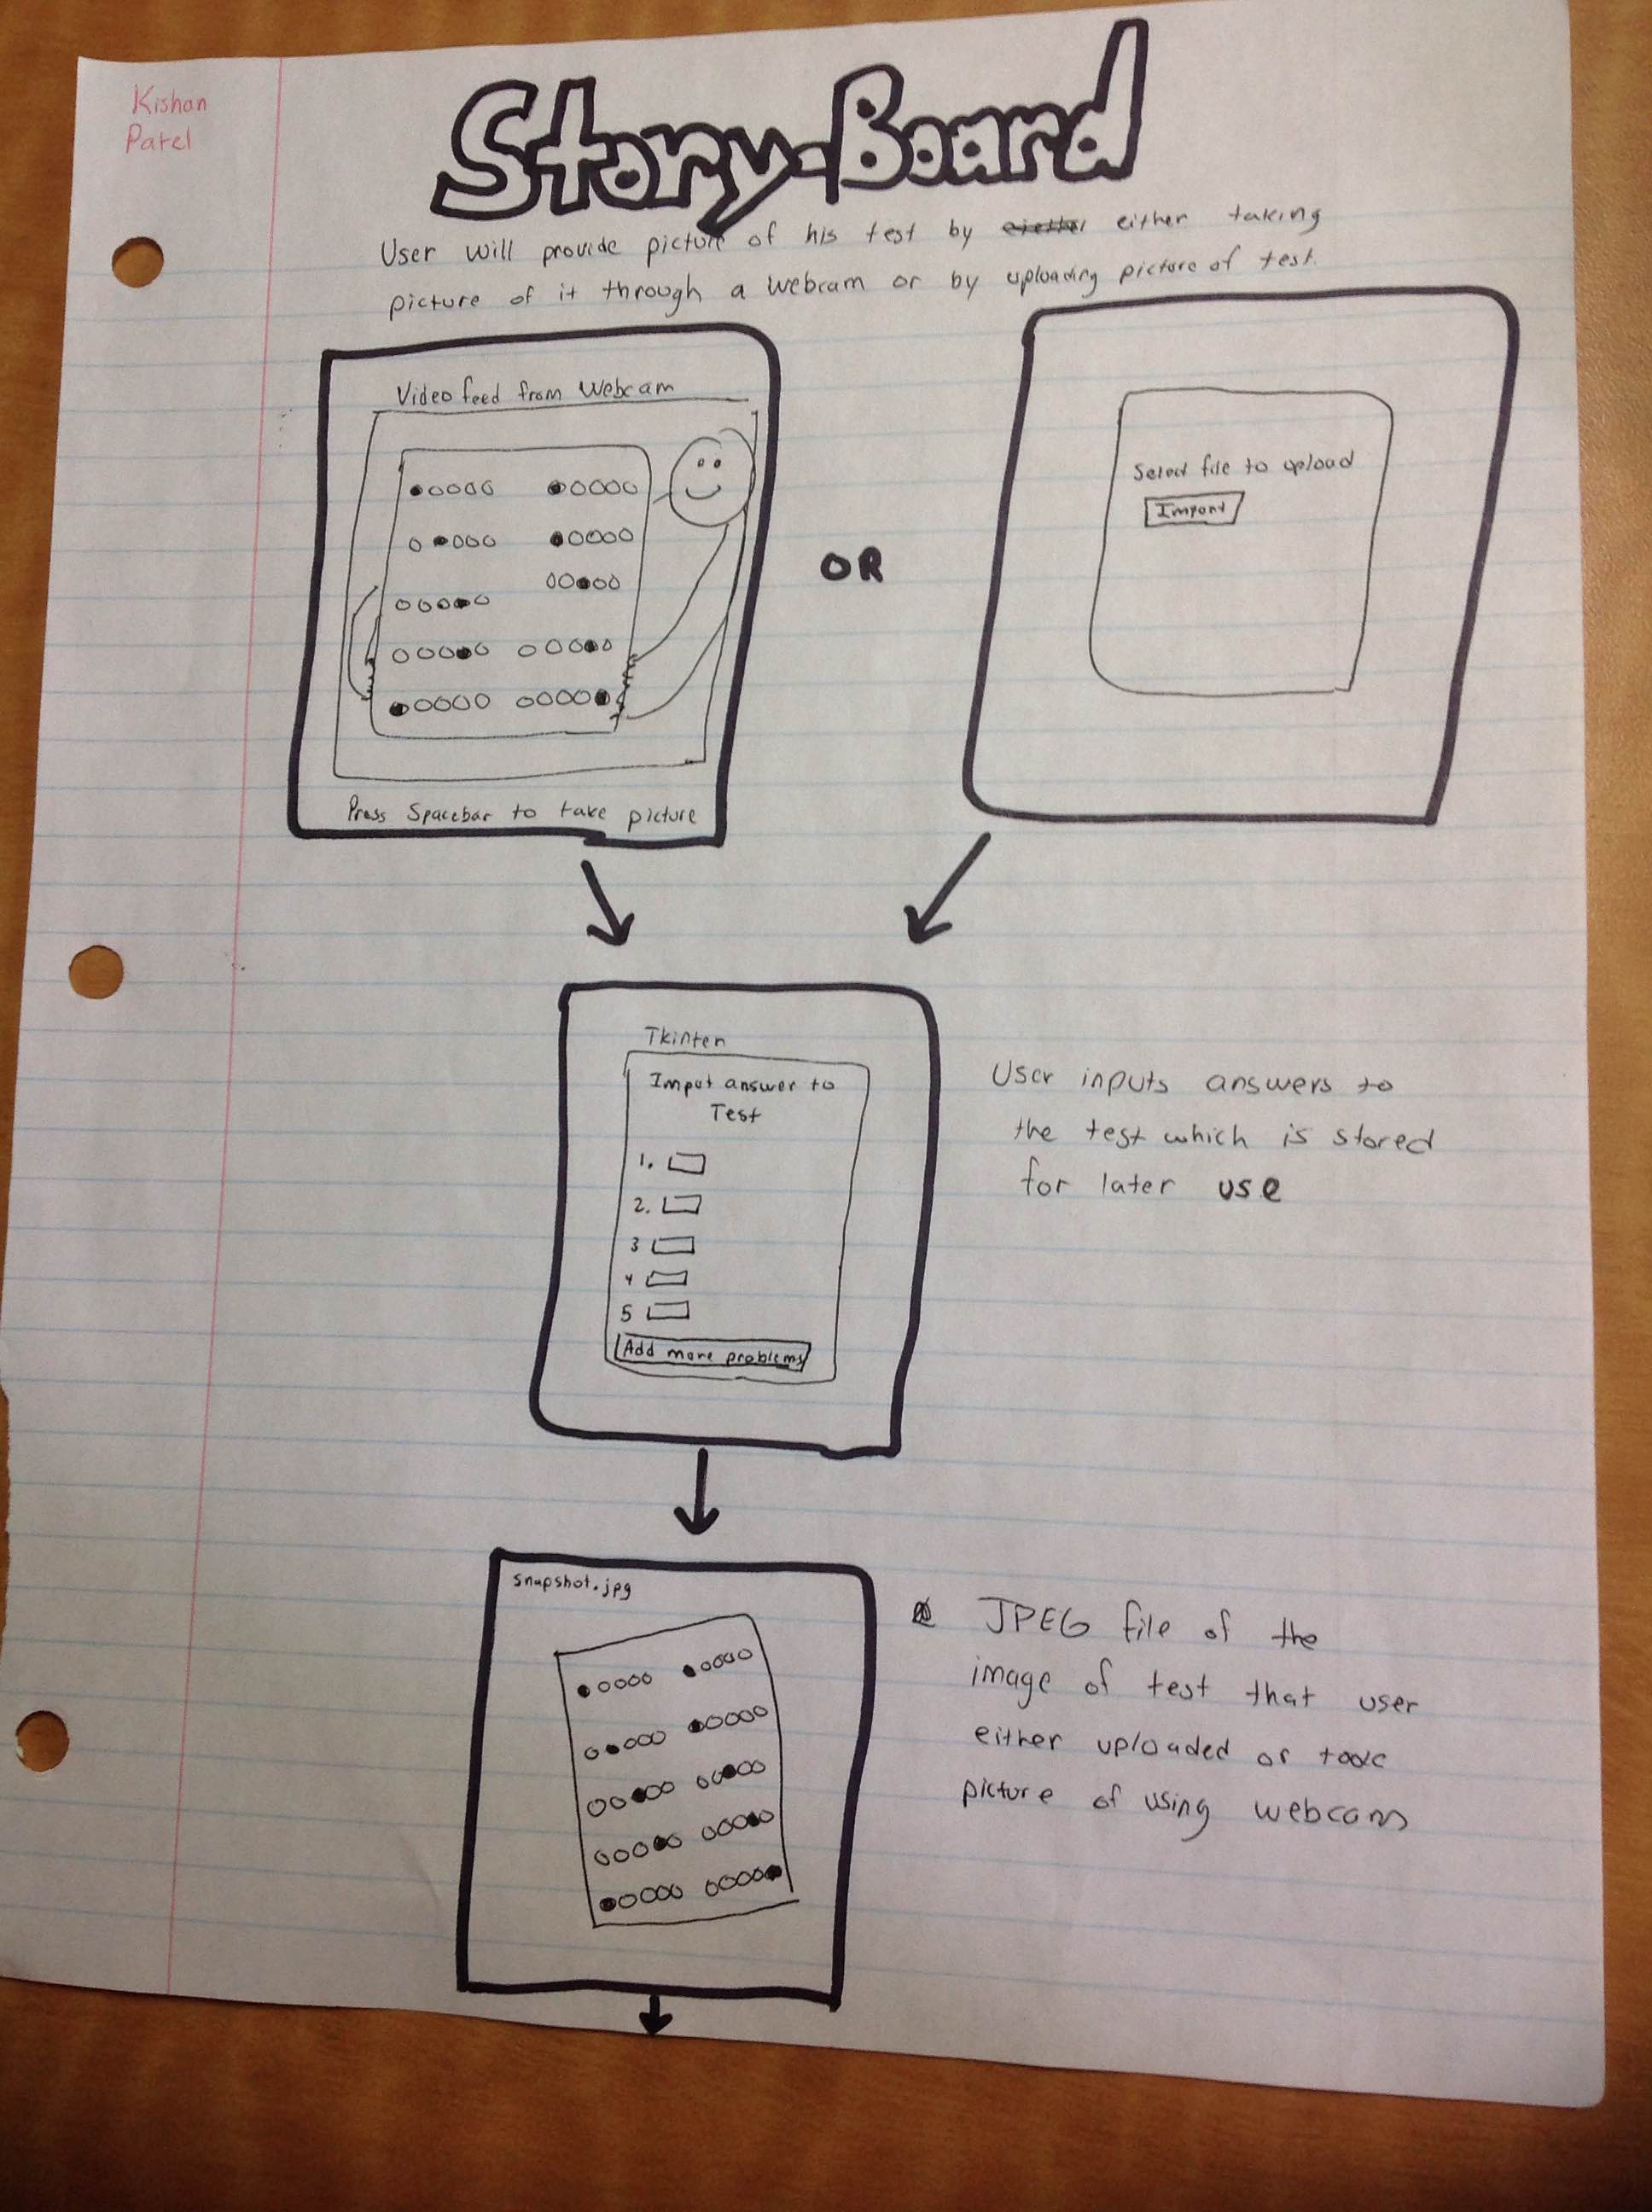 Kishan
Patel
Story-Board
User will provide picture of his test by either taking
picture of it through a webcam or by uploading picture of test.
Video feed from Webcam
Press Spacebar to take picture
OR
Select file to upload
Import
Tkinter
Input answer to
Test
1.
2.
3
4
5
Add more problems
User inputs answers to
the test which is stored
for later use
snapshot.jpg
JPEG file of the
image of test that user
either uploaded or took
picture of using webcam